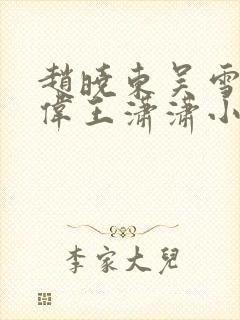 趙曉東吳雪
偉王瀟瀟小
李家大兒